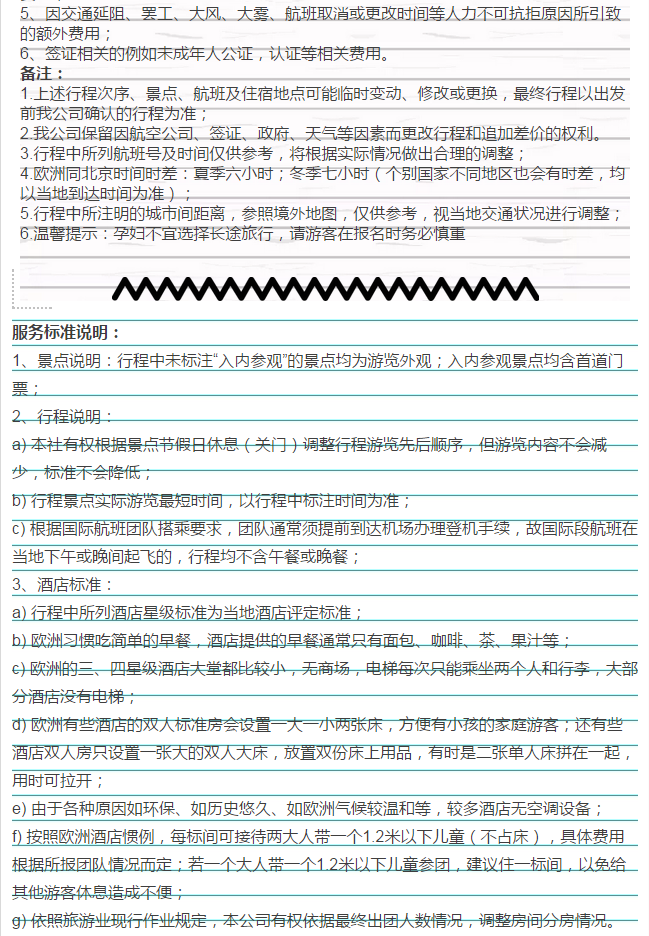 5、因交通延阻、罢工、大风、大雾、航班取消或更改时间等人力不可抗拒原因所引致
的额外费用；
6、签证相关的例如未成年人公证，认证等相关费用。
备注：
1.上述行程次序、景点、航班及住宿地点可能临时变动、修改或更换，最终行程以出发
前我公司确认的行程为准；
2.我公司保留因航空公司、签证、政府、天气等因素而更改行程和追加差价的权利。
3.行程中所列航班号及时间仅供参考，将根据实际情况做出合理的调整；
4.欧洲同北京时间时差：夏季六小时；冬季七小时（个别国家不同地区也会有时差，均
以当地到达时间为准）；
5.行程中所注明的城市间距离，参照境外地图，仅供参考，视当地交通状况进行调整；
6.温馨提示：孕妇不宜选择长途旅行，请游客在报名时务必慎重
服务标准说明：
1、景点说明：行程中未标注“入内参观”的景点均为游览外观；入内参观景点均含首道门
票；
2、行程说明：
a) 本社有权根据景点节假日休息（关门）调整行程游览先后顺序，但游览内容不会减
少，标准不会降低；
b) 行程景点实际游览最短时间，以行程中标注时间为准；
c) 根据国际航班团队搭乘要求，团队通常须提前到达机场办理登机手续，故国际段航班在
当地下午或晚间起飞的，行程均不含午餐或晚餐；
3、酒店标准：
a) 行程中所列酒店星级标准为当地酒店评定标准；
b) 欧洲习惯吃简单的早餐，酒店提供的早餐通常只有面包、咖啡、茶、果汁等；
c) 欧洲的三、四星级酒店大堂都比较小，无商场，电梯每次只能乘坐两个人和行李，大部
分酒店没有电梯；
d) 欧洲有些酒店的双人标准房会设置一大一小两张床，方便有小孩的家庭游客；还有些
酒店双人房只设置一张大的双人大床，放置双份床上用品，有时是二张单人床拼在一起，
用时可拉开；
e) 由于各种原因如环保、如历史悠久、如欧洲气候较温和等，较多酒店无空调设备；
f) 按照欧洲酒店惯例，每标间可接待两大人带一个1.2米以下儿童（不占床），具体费用
根据所报团队情况而定；若一个大人带一个1.2米以下儿童参团，建议住一标间，以免给
其他游客休息造成不便；
g) 依照旅游业现行作业规定，本公司有权依据最终出团人数情况，调整房间分房情况。